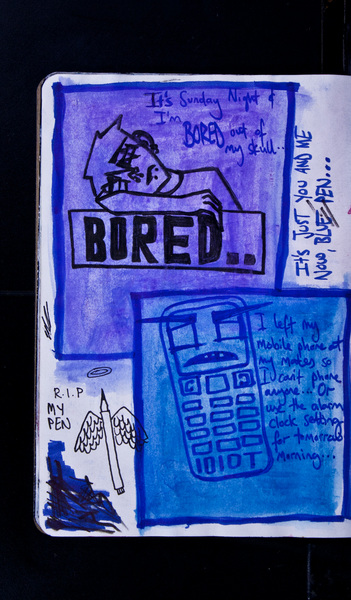 It's Sunday Night &
I'm
BORED out of
my skull..
BORED..
IT'S JUST YOU AND ME
NOW, BLUE PEN...
I left my
mobile phone at
my mates so
I can't phone
anyone... Or
use the alarm
clock setting
for tomorrow
morning...
IDIOT
R.I.P
MY
PEN